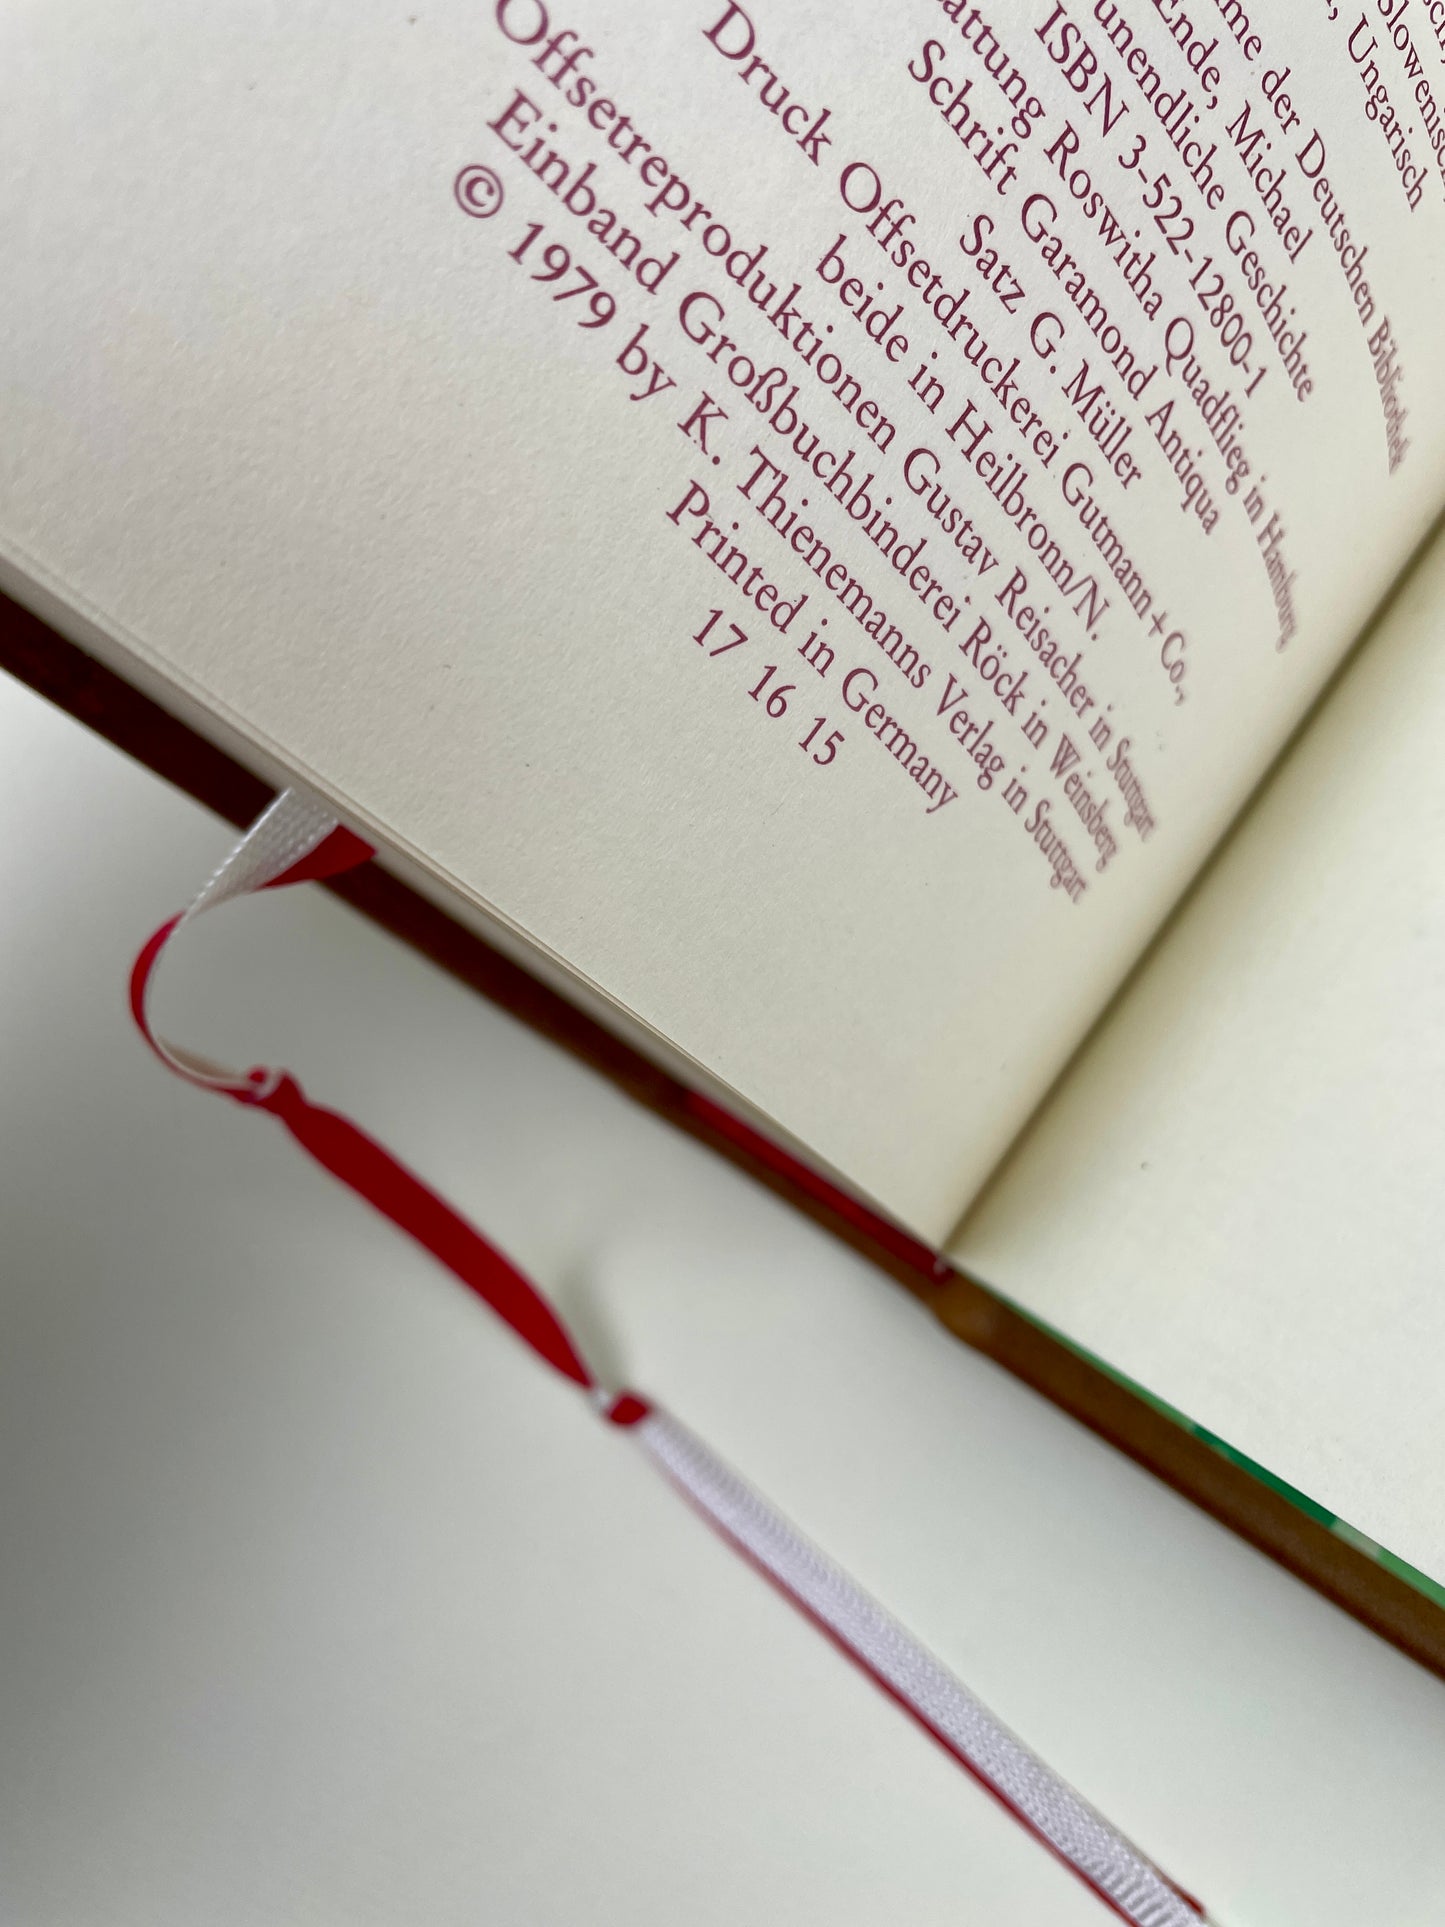 Slowenisch
, Ungarisch
der Deutschen Bibliothek
Ende, Michael
unendliche Geschichte
ISBN 3-522-12800-1
Roswitha Quadflieg in Hamburg
Schrift Garamond Antiqua
Satz G. Müller
Druck Offsetdruckerei Gutmann + Co.,
beide in Heilbronn/N.
Offsetreproduktionen Gustav Reisacher in Stuttgart
Einband Großbuchbinderei Röck in Weinsberg
© 1979 by K. Thienemanns Verlag in Stuttgart
Printed in Germany
17 16 15